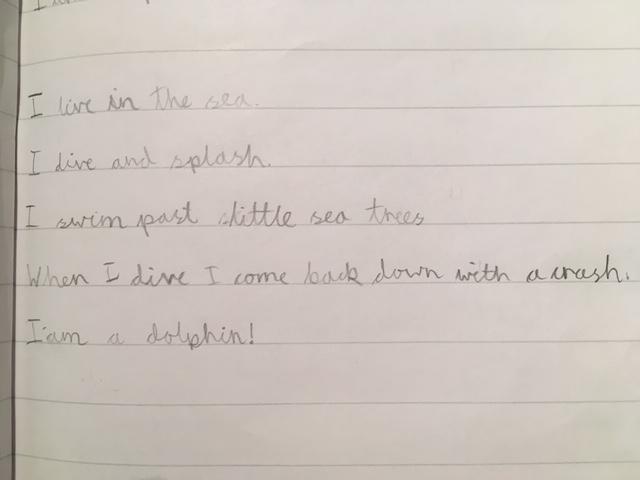 I live in the sea.
I dive and splash.
I swim past little sea trees
When I dive I come back down with a crash.
I am a dolphin!